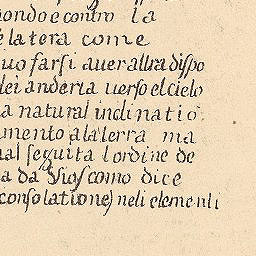 ondo e contro la
e la tera come
uo farsi aver altra dispo
lei anderia verso el cielo
a natural inclinatio
amento a la terra ma
al seguita l ordine de
a da Dios como dice
consolatione) neli elementi